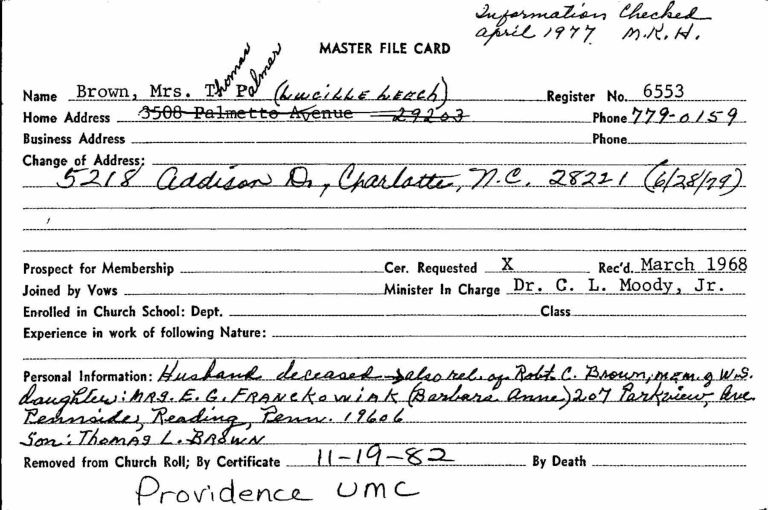 Information Checked
April 1977 M.K.H.
MASTER FILE CARD
Name Brown, Mrs. T. P. Thomas Palmer (LUCILLE LEECH) Register No. 6553
Home Address 3508 Palmetto Avenue 29203 Phone 779-0159
Business Address Phone
Change of Address:
5218 Addison Dr, Charlotte, N.C. 28221 (6/28/79)
Prospect for Membership Cer. Requested X Rec'd. March 1968
Joined by Vows Minister In Charge Dr. C. L. Moody, Jr.
Enrolled in Church School: Dept. Class
Experience in work of following Nature:
Personal Information: Husband deceased also rel. of Robt. C. Brown, mem. of W.S.
daughter: MRS. E. G. FRANCKOWIAK (Barbara Anne) 207 Parkview, Ave.
Pennside, Reading, Penn. 19606
Son: THOMAS L. BROWN
Removed from Church Roll; By Certificate 11-19-82 By Death
Providence UMC